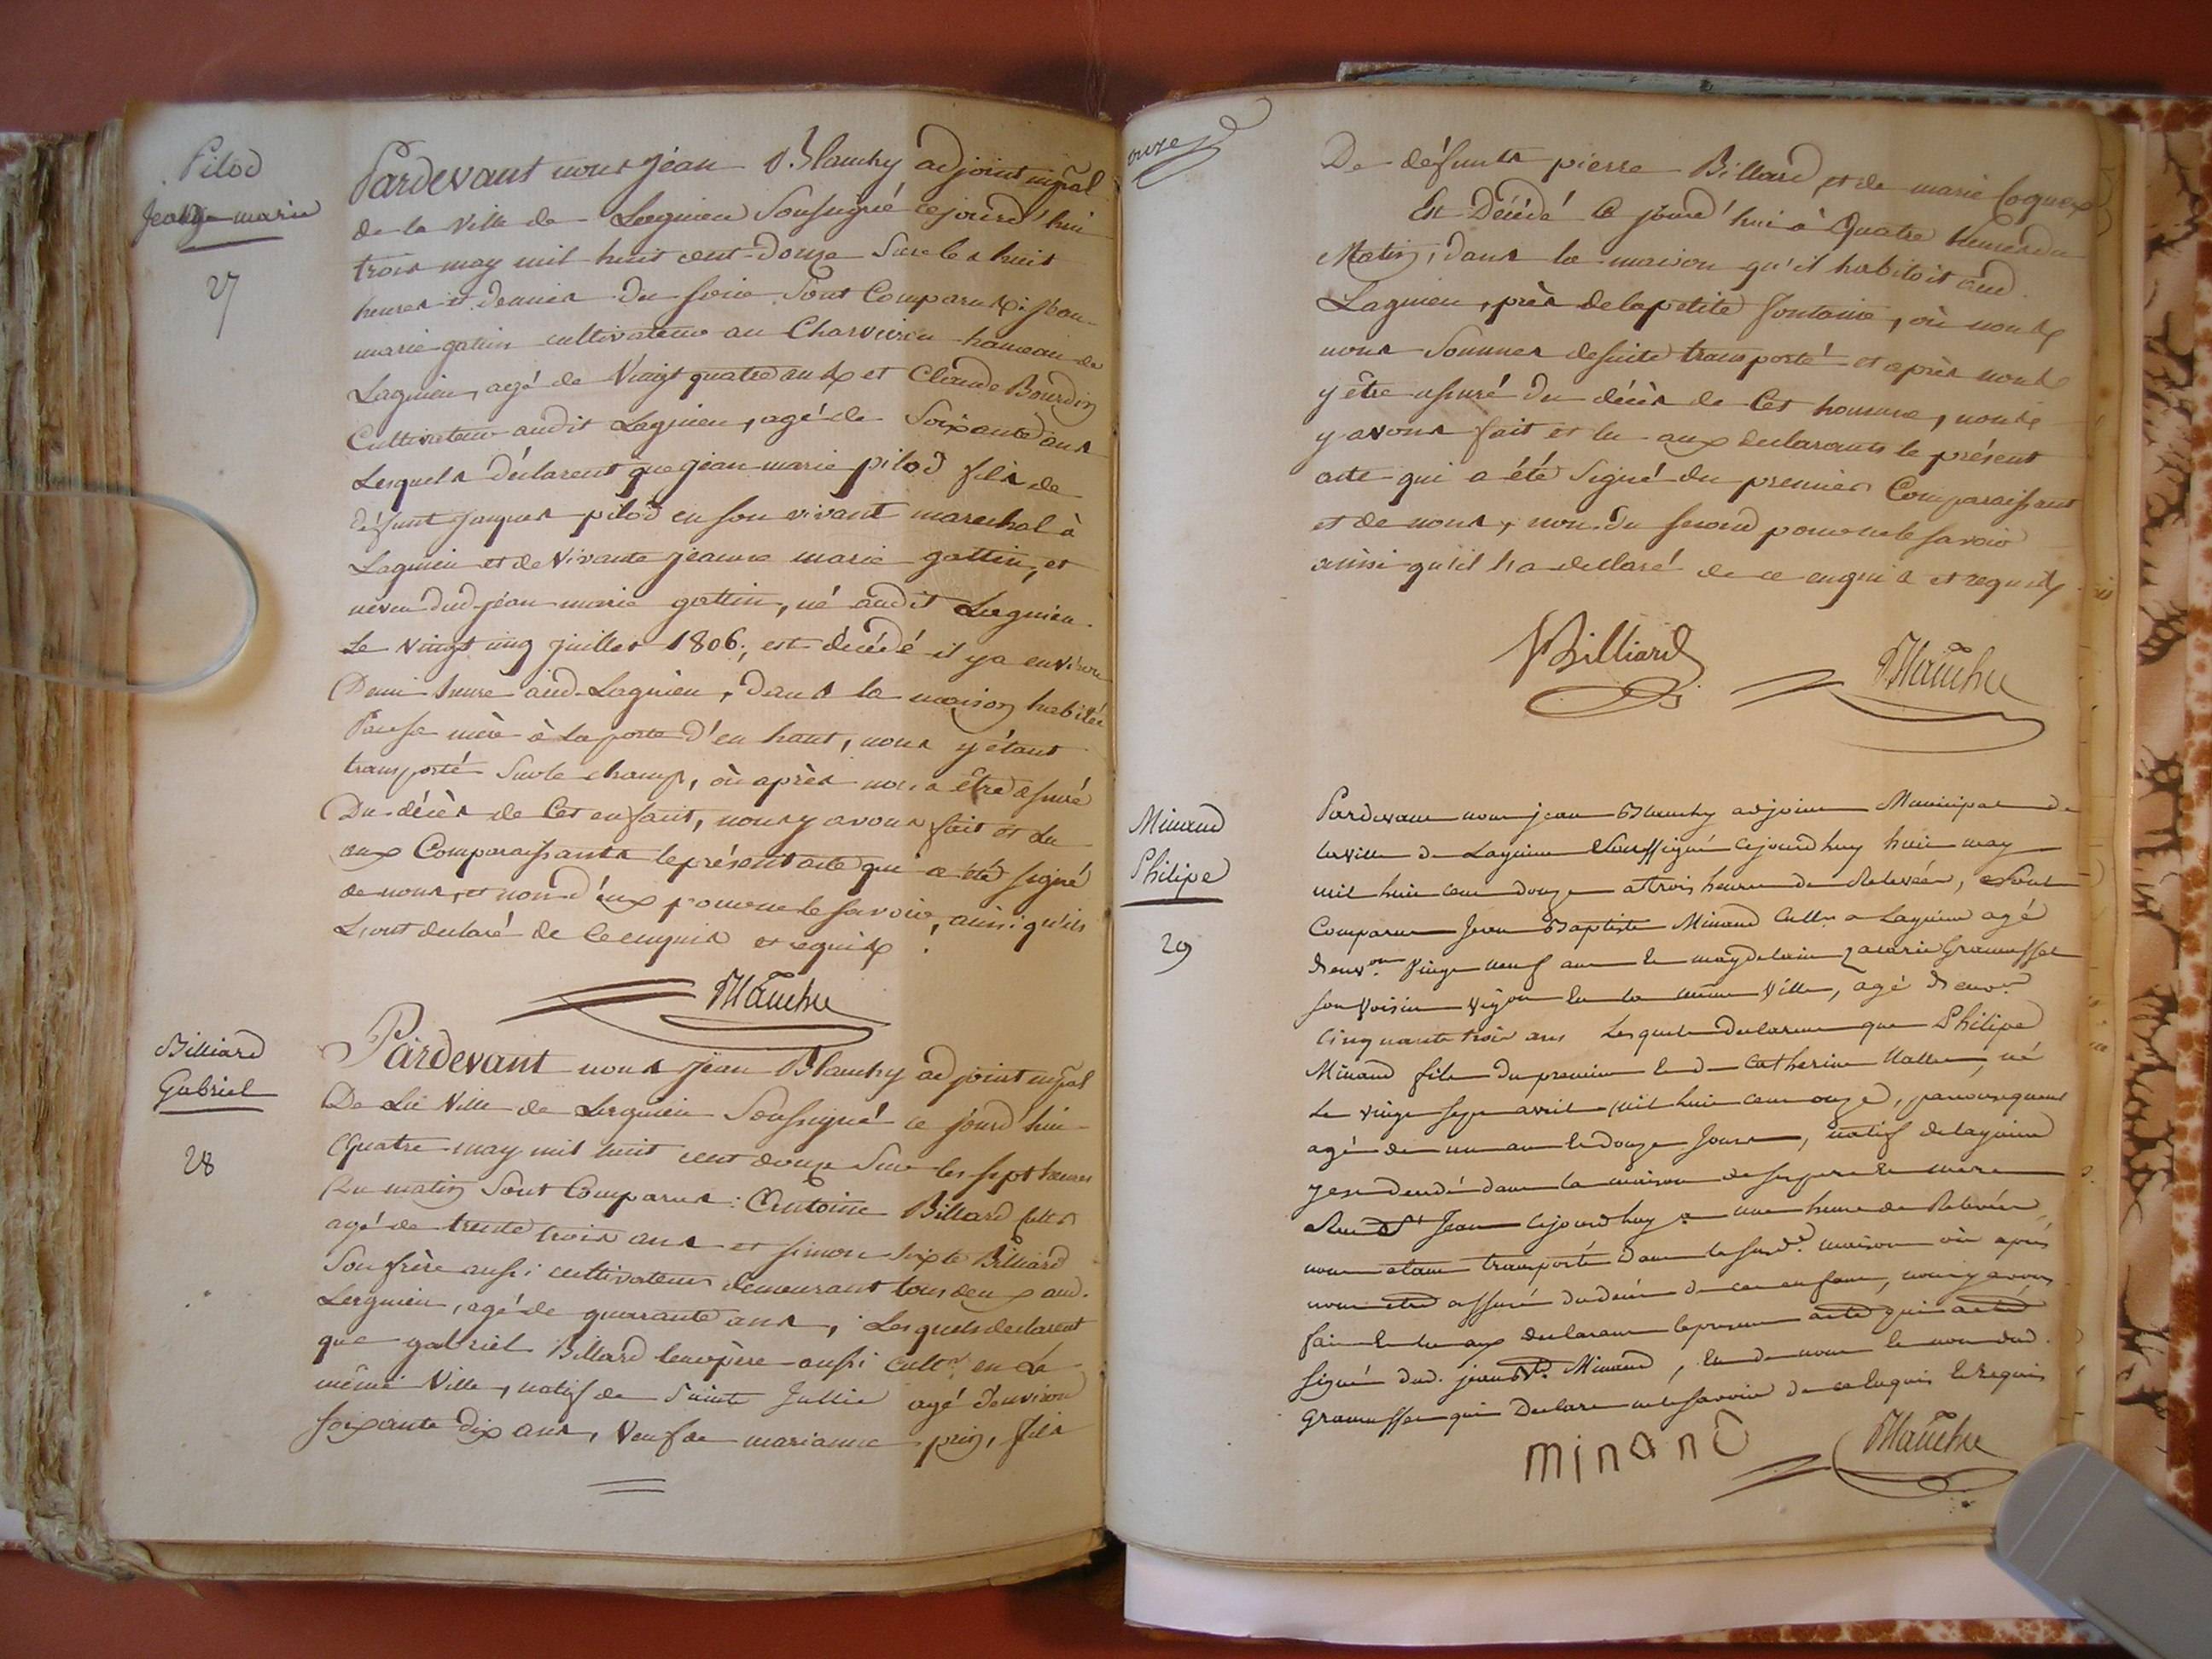 Pilod
Jean marie
27
Pardevant nous jean Blanchy adjoint mpal
de la Ville de Lagnieu Soussigné cejourd'hui
trois may mil huit cent douze Sur les huit
heures et demies du soir Sont Comparus: jean
marie gatin cultivateur au Charvieu hameau de
Lagnieu, agé de Vingt quatre ans et Claude Bourdin
Cultivateur audit Lagnieu, agé de Soixante ans
Lesquels déclarent que jean marie pilod fils de
défunt jaques pilod en son vivant marechal à
Lagnieu et de Vivante jeanne marie gattin, et
neveu dud. jean marie gattin, né audit Lagnieu
Le vingt cinq juillet 1806; est décédé il y a environ
Demi heure aud. Lagnieu, dans la maison habitée
Par sa mère à la porte d'en haut, nous y étant
transporté Sur le champ, où après nous être assuré
Du décès de Cet enfant, nous y avons fait et Lu
aux Comparaissants le présent acte qui a été signé
de nous, et non d'eux pour ne le savoir, ainsi qu'ils
L'ont declaré de ce enquis et requis.
Blanchy
Billiard
Gabriel
28
Pardevant nous jean Blanchy adjoint mpal
De La Ville de Lagnieu Soussigné ce jourd'hui
Quatre may mil huit cent douze Sur les sept heures
Du matin Sont Comparus: Antoine Billard cultr
agé de trente trois ans et simon sixte Billiard
Son frère aussi cultivateur demeurant tous deux aud.
Lagnieu, agé de quarante ans, Lesquels declarent
que gabriel Billard leur père aussi cultr en La
même Ville, natif de Sainte Jullie agé d'environ
soixante dix ans, Veuf de marianne prin, fils
onze
De défunts pierre Billard et de marie Coquex
Est Décédé Ce jourd'hui à Quatre heures du
Matin, dans la maison qu'il habitoit aud
Lagnieu, près de la petite fontaine, où nous
nous Sommes desuite transporté et après nous
y être assuré Du décès de Cet homme, nous
y avons fait et lu aux declarants le présent
acte qui a été Signé du premier Comparaissant
et de nous, non du second pour ne le savoir
ainsi qu'il l'a declaré de ce enquis et requis
Billiard
Blanchy
Minand
Philipe
29
Pardevant nous jean Blanchy adjoint Municipal de
la ville de Lagnieu Soussigné cejourdhuy huit may
mil huit cent douze a trois heures de Relevée, Sont
Comparus Jean Baptiste Minand Cultr a Lagnieu agé
d'envon Vingt neuf ans et Gramusset
son voisin en la même Ville, agé d'envon
Cinquante trois ans Lesquels declarent que Philipe
Minand fils du premier et de Catherine né
Le vingt sept avril mil huit cent onze, par conséquent
agé de un an et douze jours, natif de Lagnieu
y est decedé dans la maison de ses pere et mere
Rue St Jean cejourdhuy a une heure de Relevée
nous étant transporté dans la susde maison où après
nous être assuré du decès de cet enfant, nous y avons
fait et lu aux declarants le present acte qui a été
Signé dud. jean Bte Minand, et de nous et non dud.
Gramusset qui Declare ne le savoir de ce enquis et requis
minanD
Blanchy